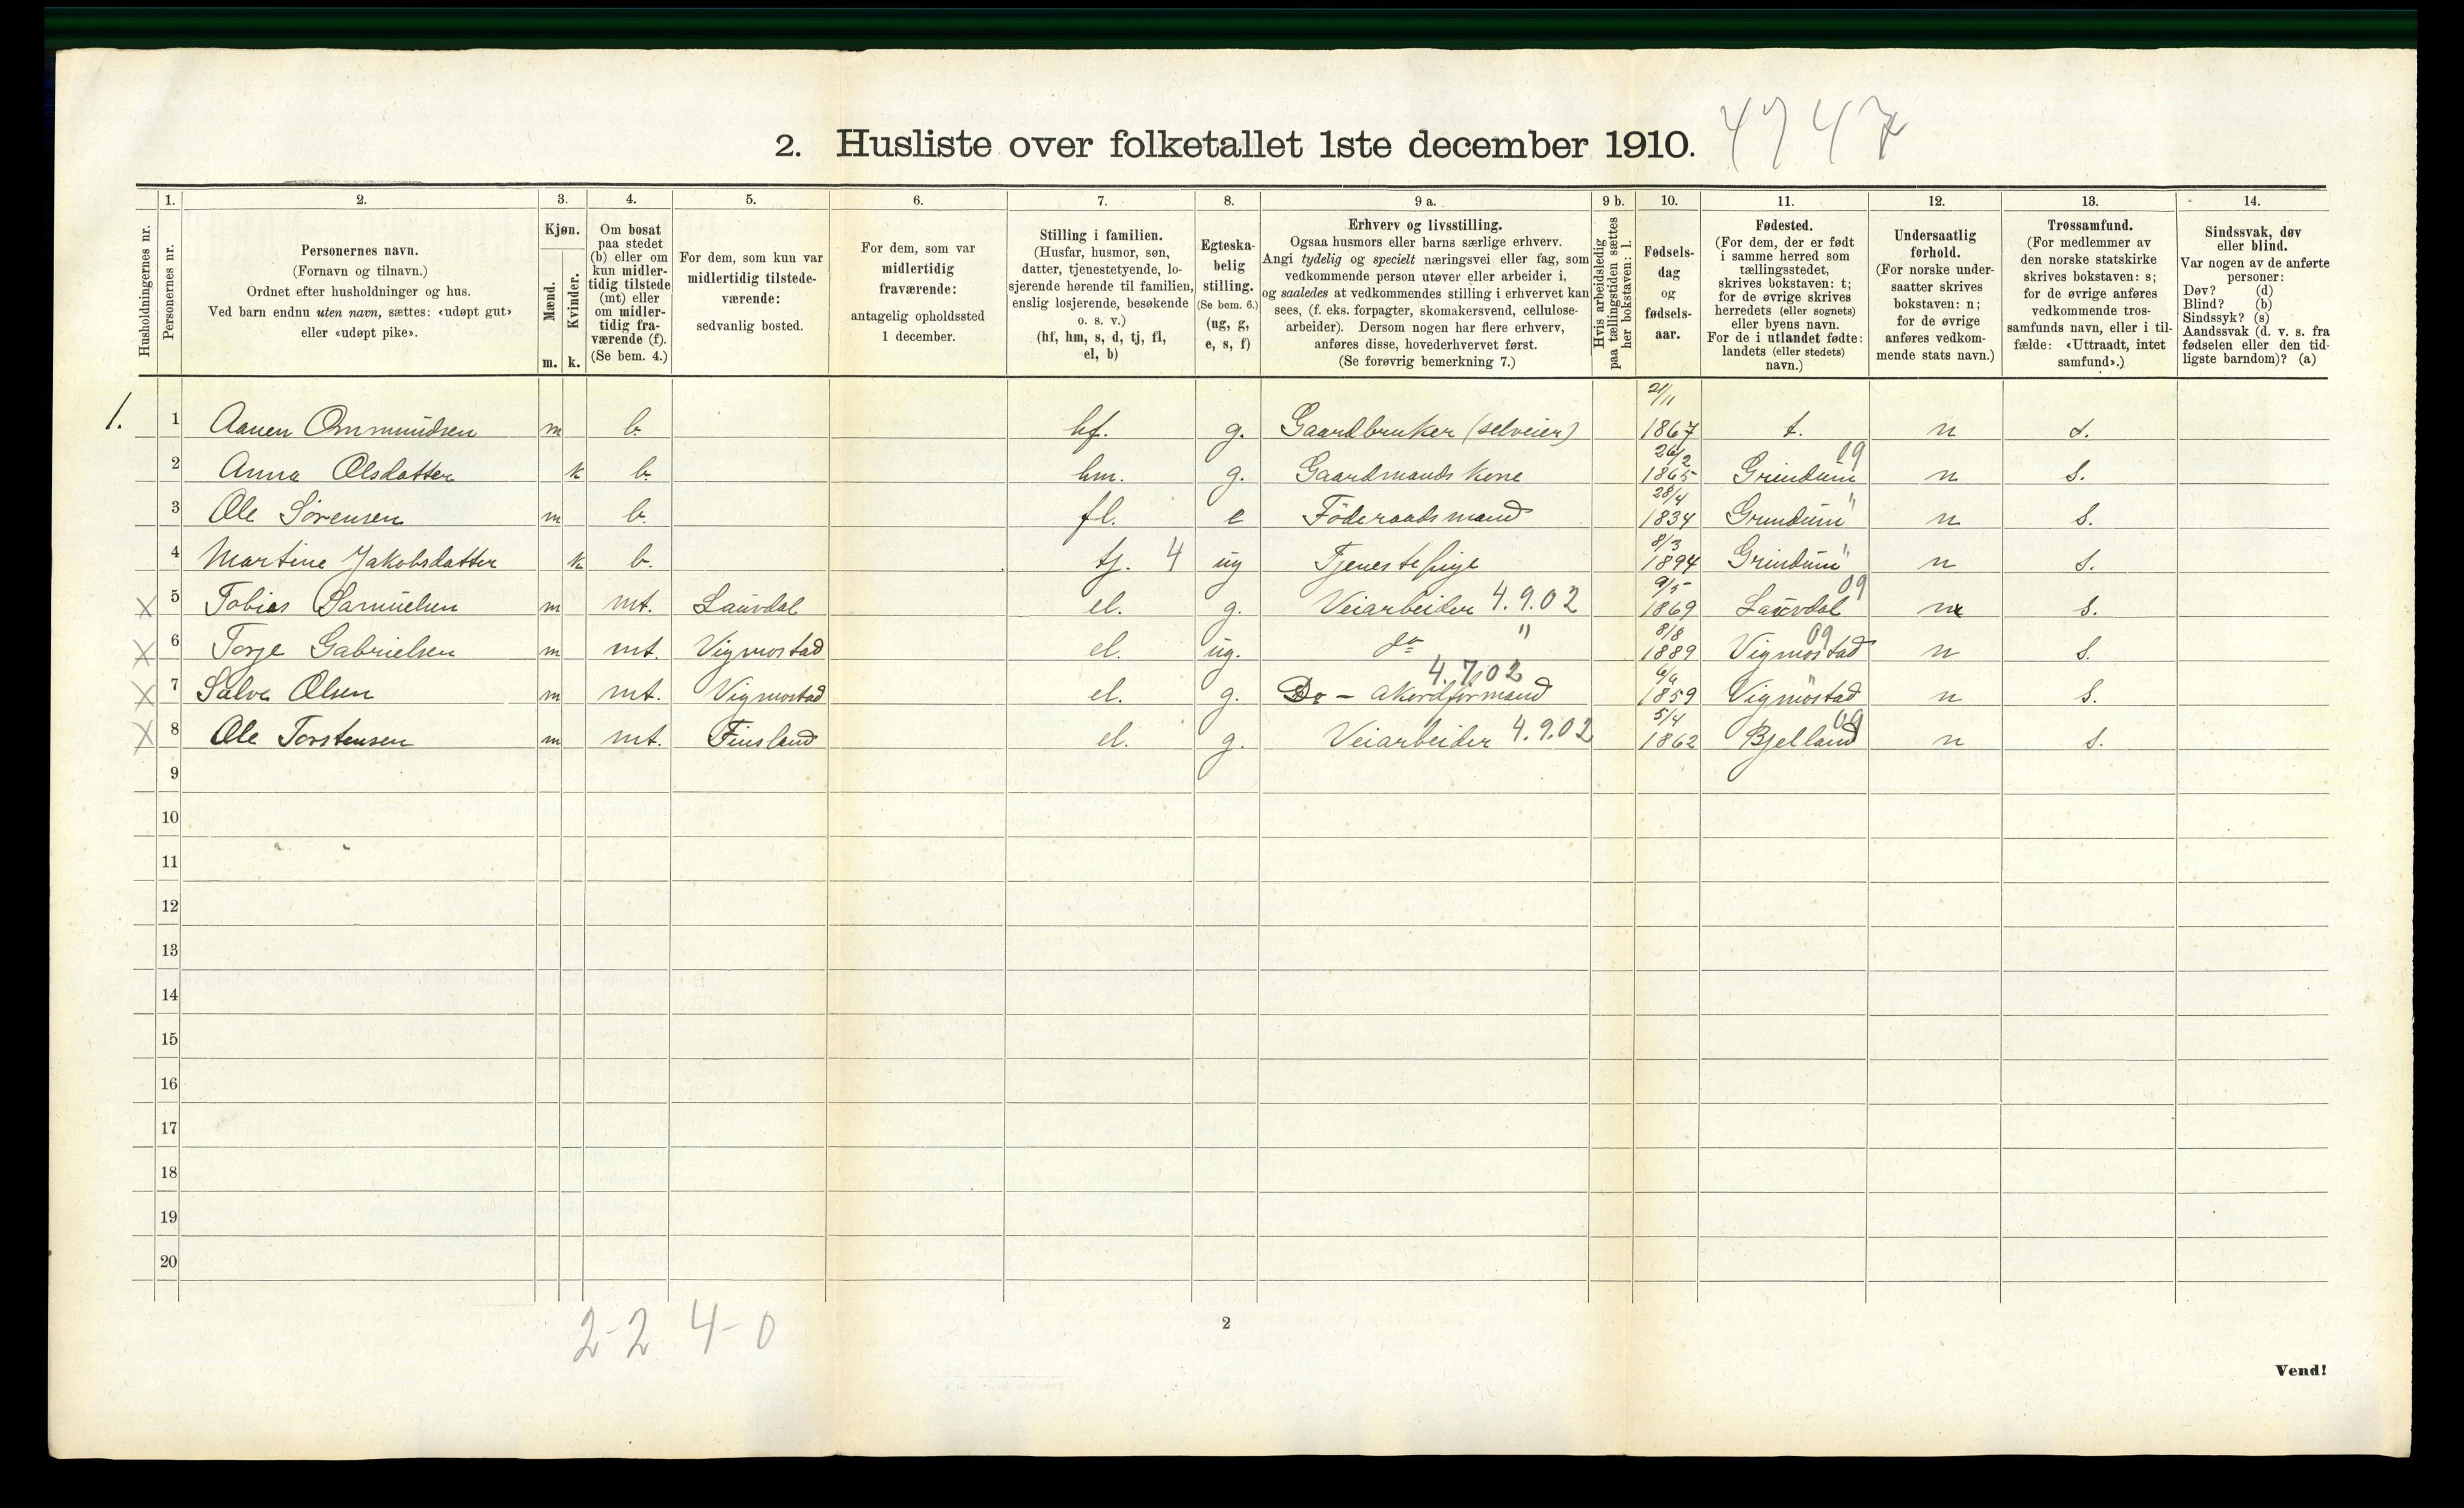 2. Husliste over folketallet 1ste december 1910. 4747
Husholdningernes nr.
1. Personernes nr.
2. Personernes navn.
(Fornavn og tilnavn.)
Ordnet efter husholdninger og hus.
Ved barn endnu uten navn, sættes: «udøpt gut»
eller «udøpt pike».
3. Kjøn.
Mænd. Kvinder.
m. k.
4. Om bosat
paa stedet
(b) eller om
kun midler-
tidig tilstede
(mt) eller
om midler-
tidig fra-
værende (f).
(Se bem. 4.)
5. For dem, som kun var
midlertidig tilstede-
værende:
sedvanlig bosted.
6. For dem, som var
midlertidig
fraværende:
antagelig opholdssted
1 december.
7. Stilling i familien.
(Husfar, husmor, søn,
datter, tjenestetyende, lo-
sjerende hørende til familien,
enslig losjerende, besøkende
o. s. v.)
(hf, hm, s, d, tj, fl,
el, b)
8. Egteska-
belig
stilling.
(Se bem. 6.)
(ug, g,
e, s, f)
9 a. Erhverv og livsstilling.
Ogsaa husmors eller barns særlige erhverv.
Angi tydelig og specielt næringsvei eller fag, som
vedkommende person utøver eller arbeider i,
og saaledes at vedkommendes stilling i erhvervet kan
sees, (f. eks. forpagter, skomakersvend, cellulose-
arbeider). Dersom nogen har flere erhverv,
anføres disse, hovederhvervet først.
(Se forøvrig bemerkning 7.)
9 b. Hvis arbeidsledig
paa tællingstiden sættes
her bokstaven: l.
10. Fødsels-
dag
og
fødsels-
aar.
11. Fødested.
(For dem, der er født
i samme herred som
tællingsstedet,
skrives bokstaven: t;
for de øvrige skrives
herredets (eller sognets)
eller byens navn.
For de i utlandet fødte:
landets (eller stedets)
navn.)
12. Undersaatlig
forhold.
(For norske under-
saatter skrives
bokstaven: n;
for de øvrige
anføres vedkom-
mende stats navn.)
13. Trossamfund.
(For medlemmer av
den norske statskirke
skrives bokstaven: s;
for de øvrige anføres
vedkommende tros-
samfunds navn, eller i til-
fælde: «Uttraadt, intet
samfund».)
14. Sindssvak, døv
eller blind.
Var nogen av de anførte
personer:
Døv? (d)
Blind? (b)
Sindssyk? (s)
Aandssvak (d. v. s. fra
fødselen eller den tid-
ligste barndom)? (a)
1. 1 Aanen Ommundsen m b. hf. g. Gaardbruker (selveier) 21/11 1867 t. n s.
2 Anna Olsdatter k b. hm. g. Gaardmands kone 26/2 1865 Grindum 09 n s.
3 Ole Sörensen m b. fl. e Föderaadsmand 28/4 1834 Grindum " n s.
4 Martine Jakobsdatter k b. tj. 4 ug Tjenestepige 8/3 1894 Grindum " n s.
X 5 Tobias Samuelsen m mt. Lauvdal el. g. Veiarbeider 4.9.02 9/5 1869 Lauvdal 09 n s.
X 6 Torje Gabrielsen m mt. Vigmostad el. ug. do " 8/8 1889 Vigmostad 09 n s.
X 7 Salve Olsen m mt. Vigmostad el. g. Do - akordformand 4.7.02 6/6 1859 Vigmostad " n s.
X 8 Ole Torstensen m mt. Finsland el. g. Veiarbeider 4.9.02 5/4 1862 Bjelland 09 n s.
9
10
11
12
13
14
15
16
17
18
19
20
2-2 4-0
2
Vend!